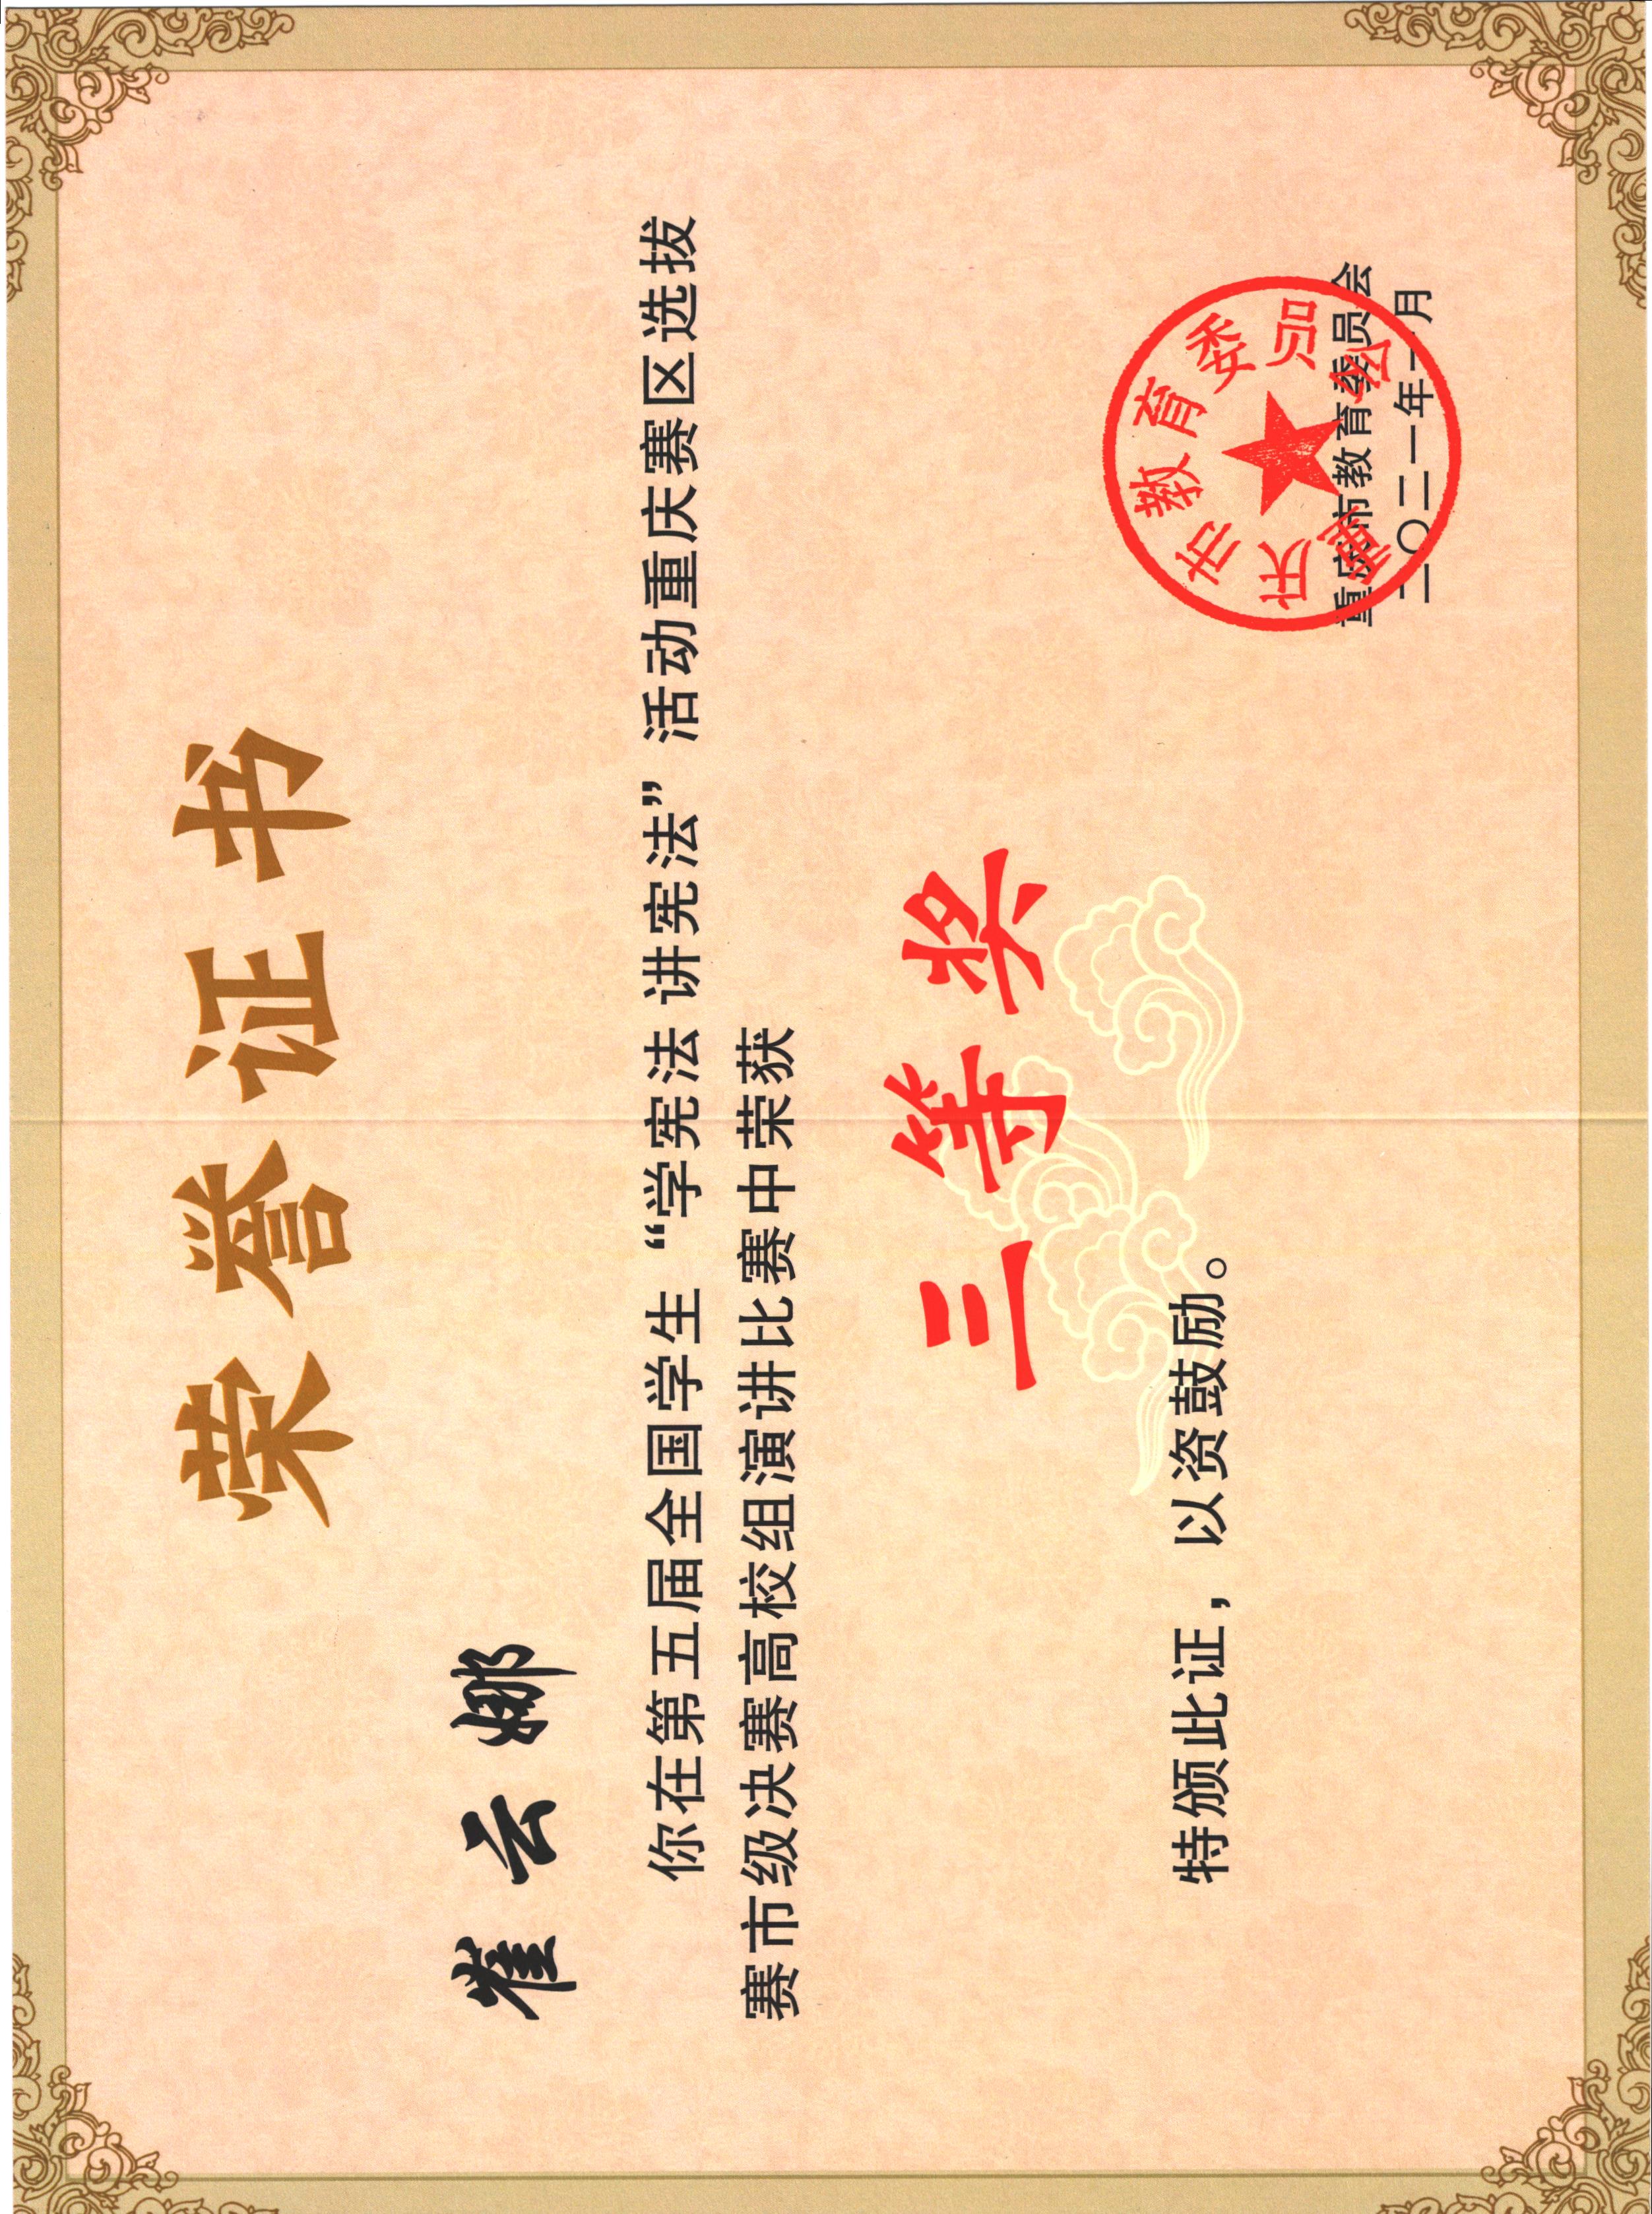 荣誉证书
崔云娜
你在第五届全国学生“学宪法 讲宪法”活动重庆赛区选拔
赛市级决赛高校组演讲比赛中荣获
三等奖
特颁此证，以资鼓励。
重庆市教育委员会
二〇二一年一月
重庆市教育委员会